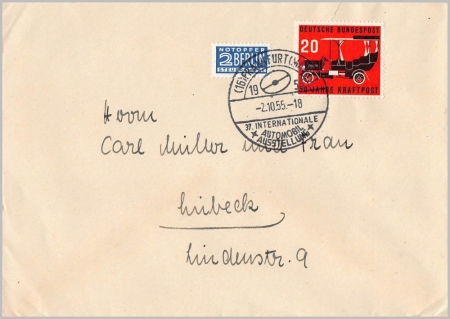 NOTOPFER
2 BERLIN
STEUERMARKE
DEUTSCHE BUNDESPOST
20
50 JAHRE KRAFTPOST
(16) FRANKFURT (MAIN)
19 5
-2.10.55.-18
37. INTERNATIONALE
AUTOMOBIL
AUSSTELLUNG
Herrn
Carl Müller und Frau
Lübeck
Lindenstr. 9